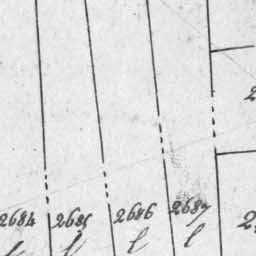 2684 2685 2686 2687
l l l l